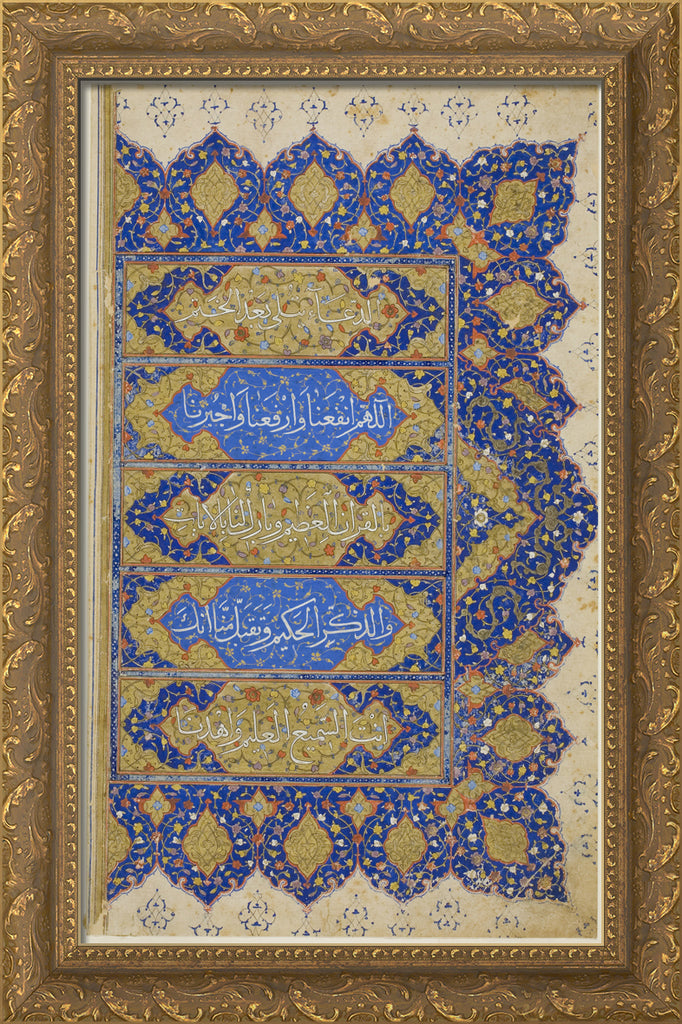 لدعاء يتلي بعد الختم
اللهم انفعنا وارفعنا واجبرنا
بالقران العظيم وبارك لنا بالايات
والذكر الحكيم وتقبل منا انك
انت السميع العليم واهدنا